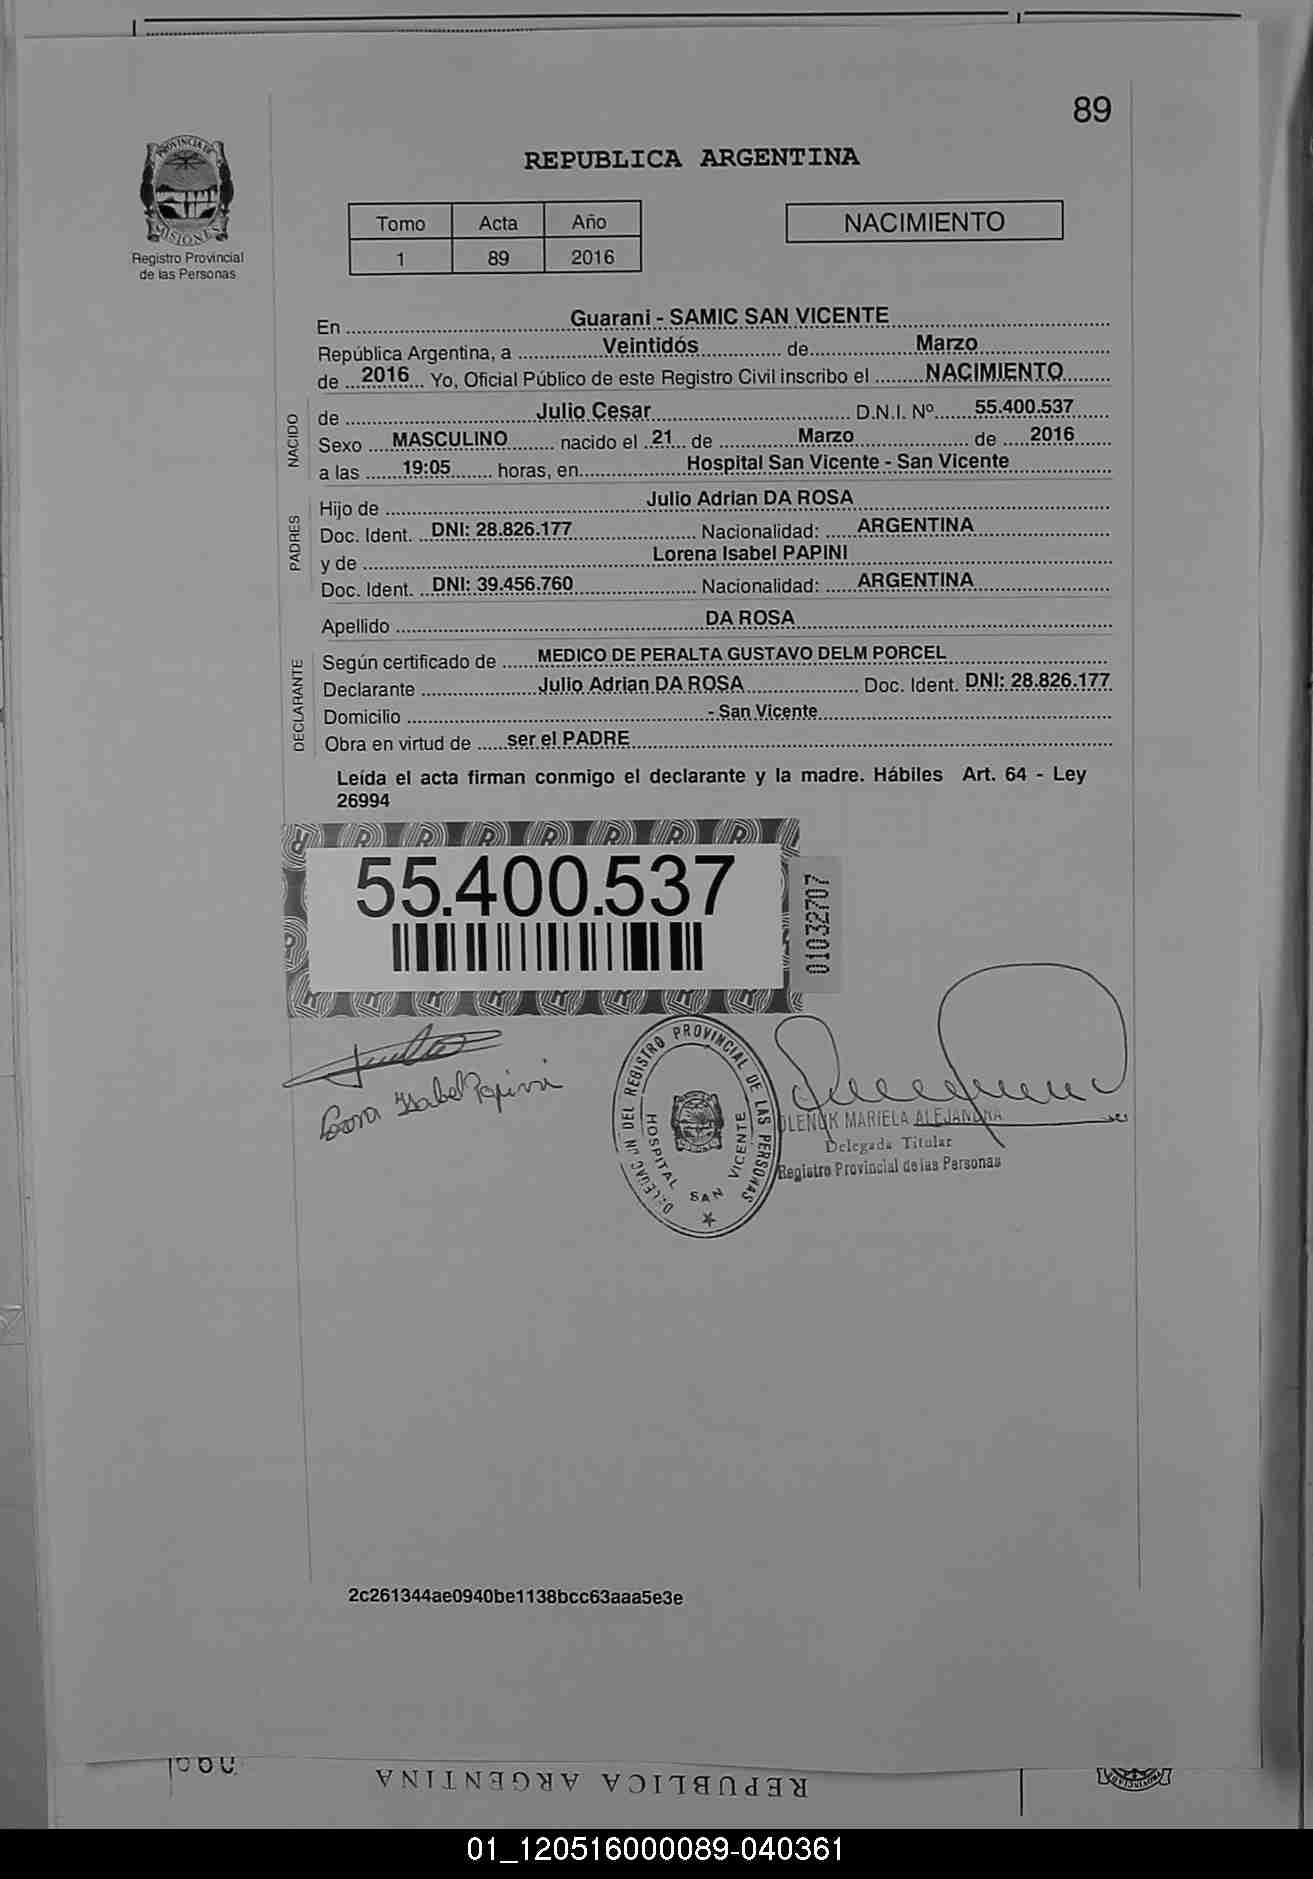 89
PROVINCIA DE
MISIONES
Registro Provincial
de las Personas
REPUBLICA ARGENTINA
Tomo Acta Año
1 89 2016
NACIMIENTO
En Guarani - SAMIC SAN VICENTE
República Argentina, a Veintidós de Marzo
de 2016 Yo, Oficial Público de este Registro Civil inscribo el NACIMIENTO
NACIDO
de Julio Cesar D.N.I. Nº 55.400.537
Sexo MASCULINO nacido el 21 de Marzo de 2016
a las 19:05 horas, en Hospital San Vicente - San Vicente
PADRES
Hijo de Julio Adrian DA ROSA
Doc. Ident. DNI: 28.826.177 Nacionalidad: ARGENTINA
y de Lorena Isabel PAPINI
Doc. Ident. DNI: 39.456.760 Nacionalidad: ARGENTINA
Apellido DA ROSA
DECLARANTE
Según certificado de MEDICO DE PERALTA GUSTAVO DELM PORCEL
Declarante Julio Adrian DA ROSA Doc. Ident. DNI: 28.826.177
Domicilio - San Vicente
Obra en virtud de ser el PADRE
Leída el acta firman conmigo el declarante y la madre. Hábiles Art. 64 - Ley
26994
55.400.537
01032707
Isabel Papini
DEL REGISTRO PROVINCIAL DE LAS PERSONAS
HOSPITAL SAN VICENTE
MARIELA ALEJANDRA
Delegada Titular
Registro Provincial de las Personas
2c261344ae0940be1138bcc63aaa5e3e
REPUBLICA ARGENTINA
01_120516000089-040361